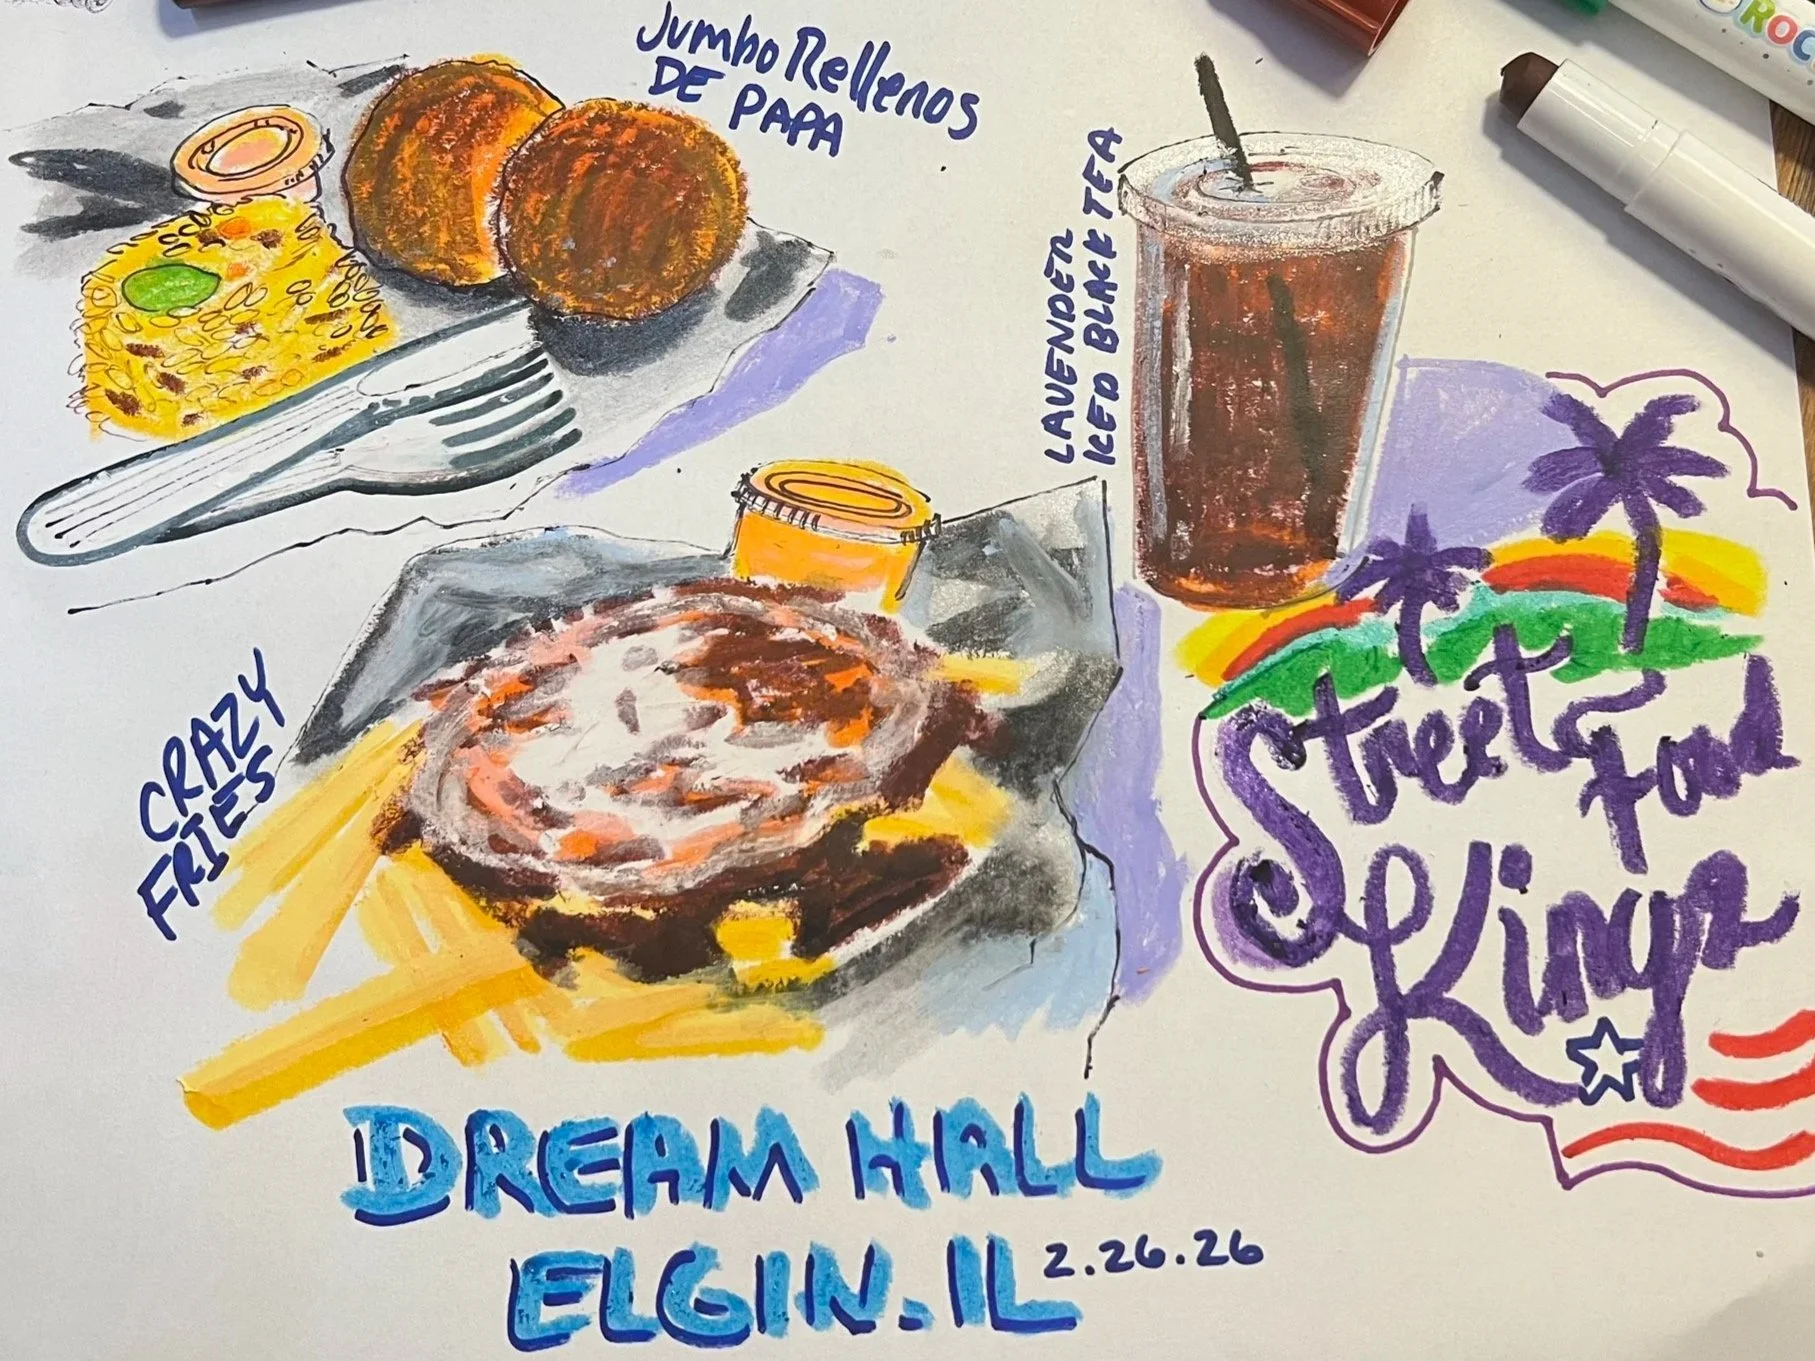 Jumbo Rellenos
DE PAPA
LAVENDER
ICED BLACK TEA
CRAZY
FRIES
Street Food
Kingz
DREAM HALL
ELGIN.IL
2.26.26